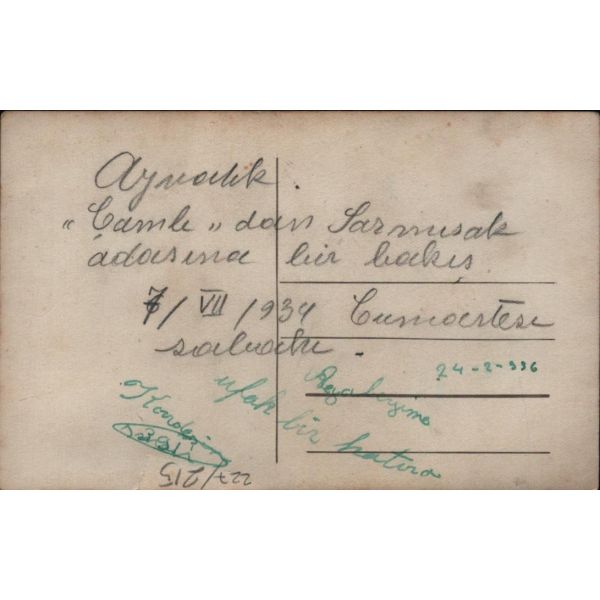 Ayvalık.
"Çamlı" dan Sarmısak
adasına bir bakış
7/VII/934 Cumaertesi
sabahı.
24-2-936
ufak bir hatıra
Kardeşin
227/215